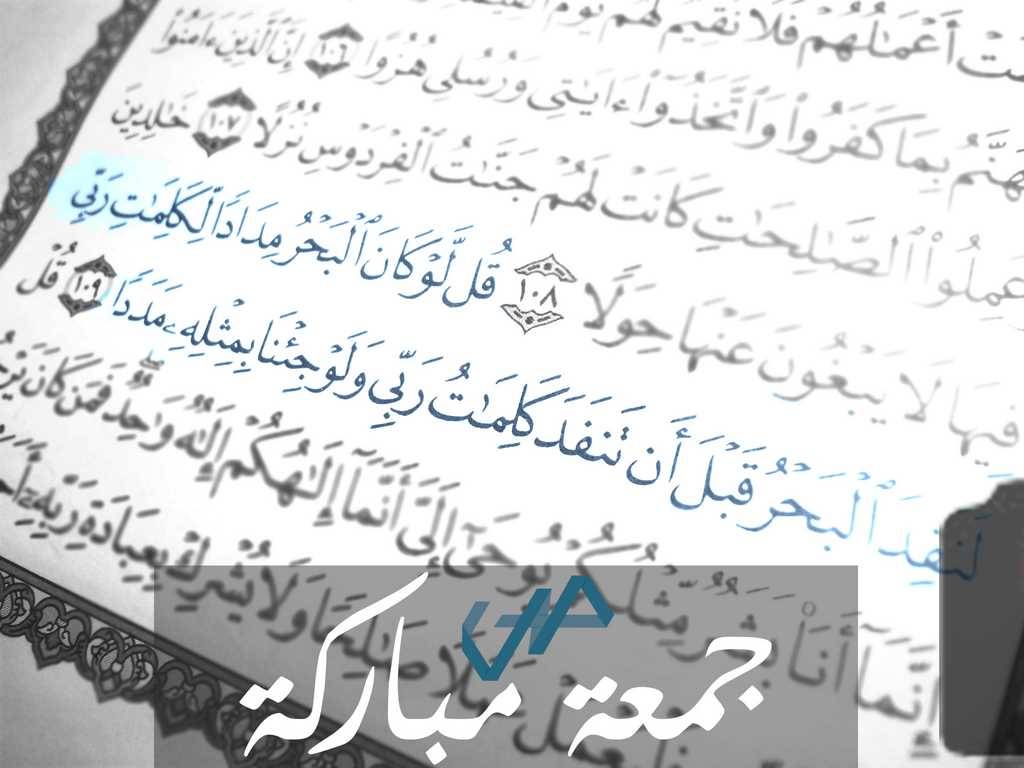 أَعْمَٰلُهُمْ فَلَا نُقِيمُ لَهُمْ يَوْمَ
بِمَا كَفَرُوا۟ وَٱتَّخَذُوٓا۟ ءَايَٰتِى وَرُسُلِى هُزُوًا ١٠٦ إِنَّ ٱلَّذِينَ ءَامَنُوا۟
عَمِلُوا۟ ٱلصَّٰلِحَٰتِ كَانَتْ لَهُمْ جَنَّٰتُ ٱلْفِرْدَوْسِ نُزُلًا ١٠٧ خَٰلِدِينَ
فِيهَا لَا يَبْغُونَ عَنْهَا حِوَلًا ١٠٨ قُل لَّوْ كَانَ ٱلْبَحْرُ مِدَادًا لِّكَلِمَٰتِ رَبِّى
لَنَفِدَ ٱلْبَحْرُ قَبْلَ أَن تَنفَدَ كَلِمَٰتُ رَبِّى وَلَوْ جِئْنَا بِمِثْلِهِۦ مَدَدًا ١٠٩ قُلْ
إِنَّمَآ أَنَا۠ بَشَرٌ مِّثْلُكُمْ يُوحَىٰٓ إِلَىَّ أَنَّمَآ إِلَٰهُكُمْ إِلَٰهٌ وَٰحِدٌ فَمَن كَانَ
صَٰلِحًا وَلَا يُشْرِكْ بِعِبَادَةِ رَبِّهِۦٓ
جمعة مباركة